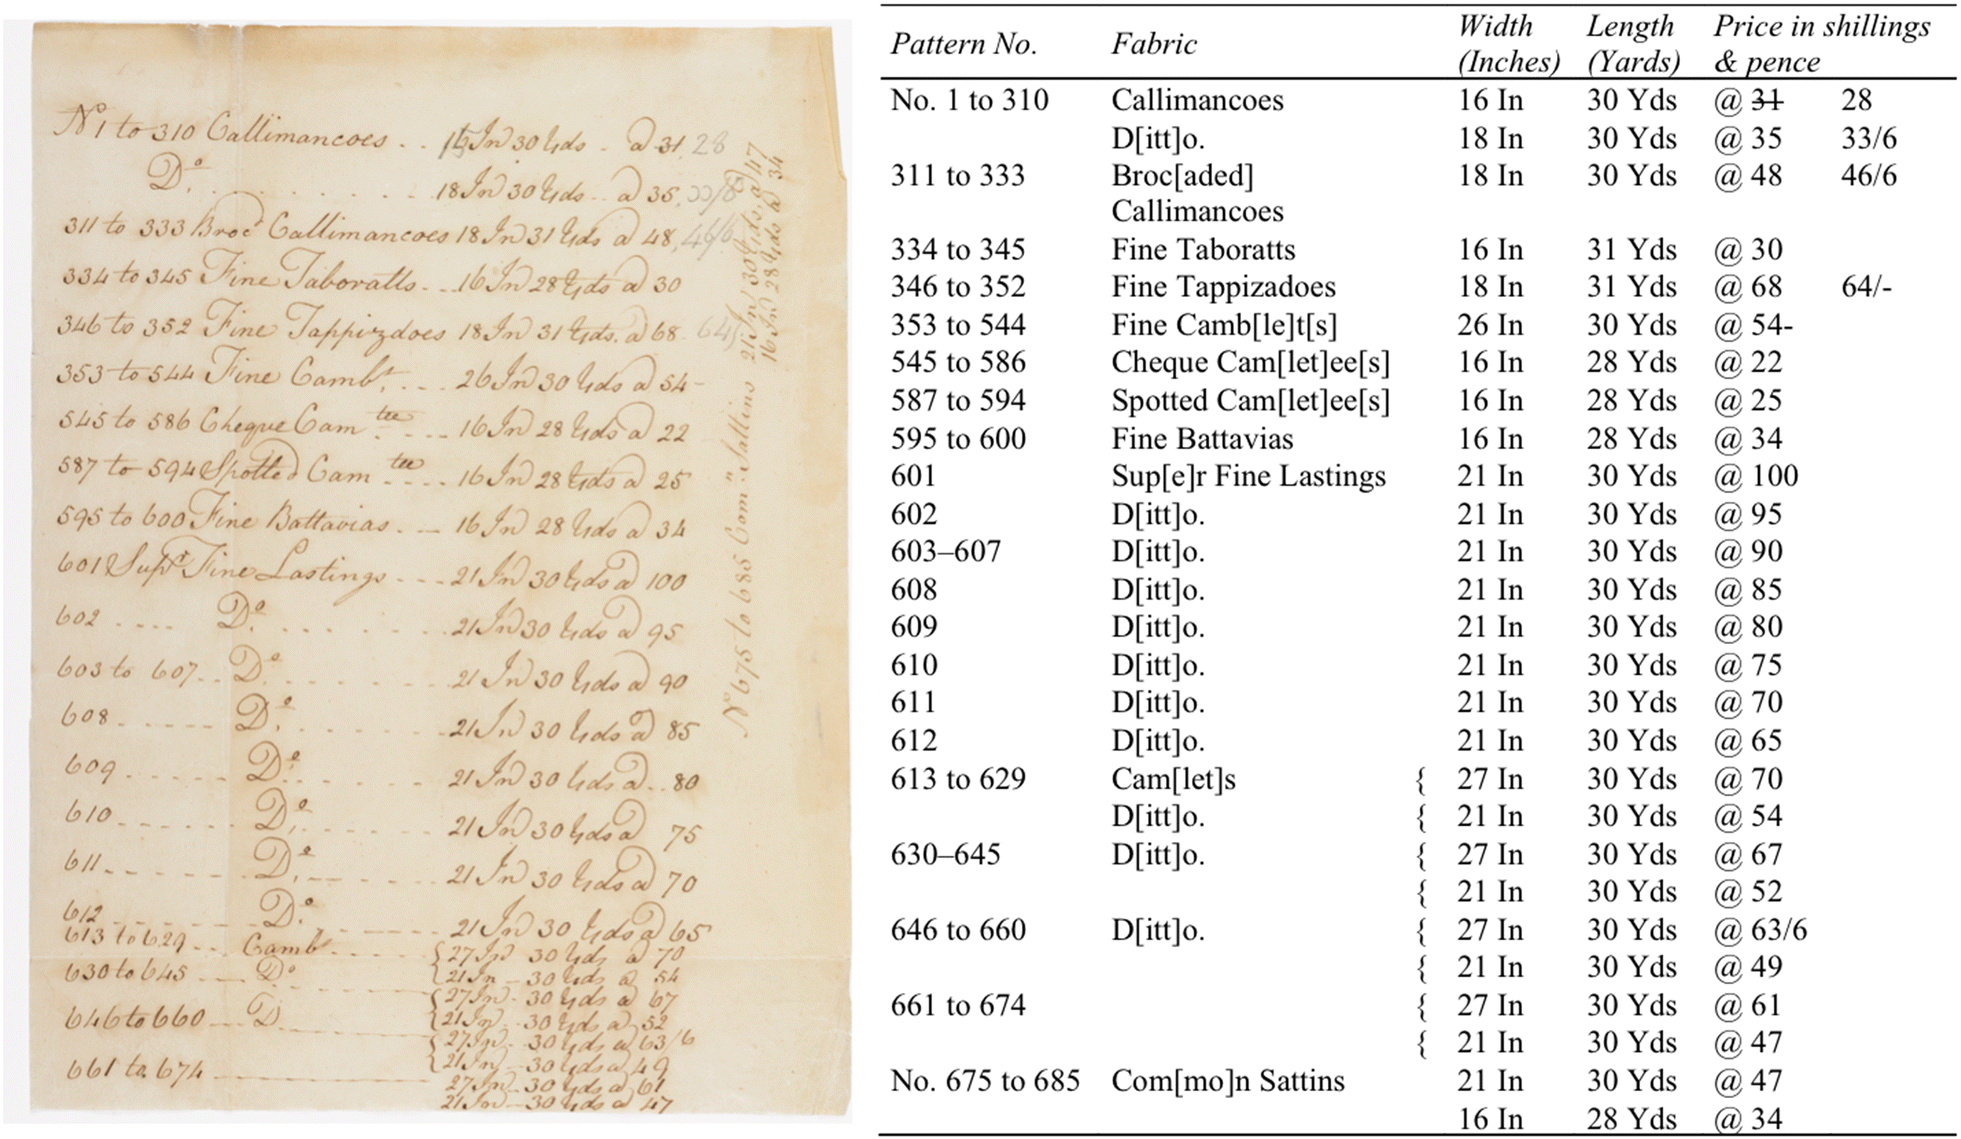 No 1 to 310 Callimancoes . . 16 In 30 Yds . a 31 28
Do. 18 In 30 Yds .. a 35, 33/6
311 to 333 Brocd Callimancoes 18 In 31 Yds a 48, 46/6
334 to 345 Fine Taboratts . . . 16 In 28 Yds a 30
346 to 352 Fine Tappizdoes 18 In 31 Yds. a 68 64/
353 to 544 Fine Cambt. . . . 26 In 30 Yds a 54-
545 to 586 Cheque Cam tee . . . . 16 In 28 Yds a 22
587 to 594 Spotted Cam tee . . . . 16 In 28 Yds a 25
595 to 600 Fine Battavias . . . 16 In 28 Yds a 34
601 Supr Fine Lastings . . . . 21 In 30 Yds a 100
602 . . . . Do. . . . . 21 In 30 Yds a 95
603 to 607 . . Do. . . . . 21 In 30 Yds a 90
608 . . . . . Do. . . . . 21 In 30 Yds a 85
609 . . . . . Do. . . . . 21 In 30 Yds a . . 80
610 . . . . . Do. . . . . 21 In 30 Yds a 75
611 . . . . . Do. . . . . 21 In 30 Yds a 70
612 . . . . . Do. . . . . 21 In 30 Yds a 65
613 to 629 . . Cambt { 27 In 30 Yds a 70
21 In 30 Yds a 54
630 to 645 Do { 27 In 30 Yds a 67
21 In 30 Yds a 52
646 to 660 D { 27 In 30 Yds a 63/6
21 In 30 Yds a 49
661 to 674 27 In 30 Yds a 61
21 In 30 Yds a 47
No 675 to 685 Com.n Sattins 21 In 30 Yds a 47
16 In 28 Yds a 34
Pattern No. Fabric Width (Inches) Length (Yards) Price in shillings & pence
No. 1 to 310 Callimancoes 16 In 30 Yds @ 31 28
D[itt]o. 18 In 30 Yds @ 35 33/6
311 to 333 Broc[aded] 18 In 30 Yds @ 48 46/6
Callimancoes
334 to 345 Fine Taboratts 16 In 31 Yds @ 30
346 to 352 Fine Tappizadoes 18 In 31 Yds @ 68 64/-
353 to 544 Fine Camb[le]t[s] 26 In 30 Yds @ 54-
545 to 586 Cheque Cam[let]ee[s] 16 In 28 Yds @ 22
587 to 594 Spotted Cam[let]ee[s] 16 In 28 Yds @ 25
595 to 600 Fine Battavias 16 In 28 Yds @ 34
601 Sup[e]r Fine Lastings 21 In 30 Yds @ 100
602 D[itt]o. 21 In 30 Yds @ 95
603–607 D[itt]o. 21 In 30 Yds @ 90
608 D[itt]o. 21 In 30 Yds @ 85
609 D[itt]o. 21 In 30 Yds @ 80
610 D[itt]o. 21 In 30 Yds @ 75
611 D[itt]o. 21 In 30 Yds @ 70
612 D[itt]o. 21 In 30 Yds @ 65
613 to 629 Cam[let]s { 27 In 30 Yds @ 70
D[itt]o. { 21 In 30 Yds @ 54
630–645 D[itt]o. { 27 In 30 Yds @ 67
{ 21 In 30 Yds @ 52
646 to 660 D[itt]o. { 27 In 30 Yds @ 63/6
{ 21 In 30 Yds @ 49
661 to 674 { 27 In 30 Yds @ 61
{ 21 In 30 Yds @ 47
No. 675 to 685 Com[mo]n Sattins 21 In 30 Yds @ 47
16 In 28 Yds @ 34